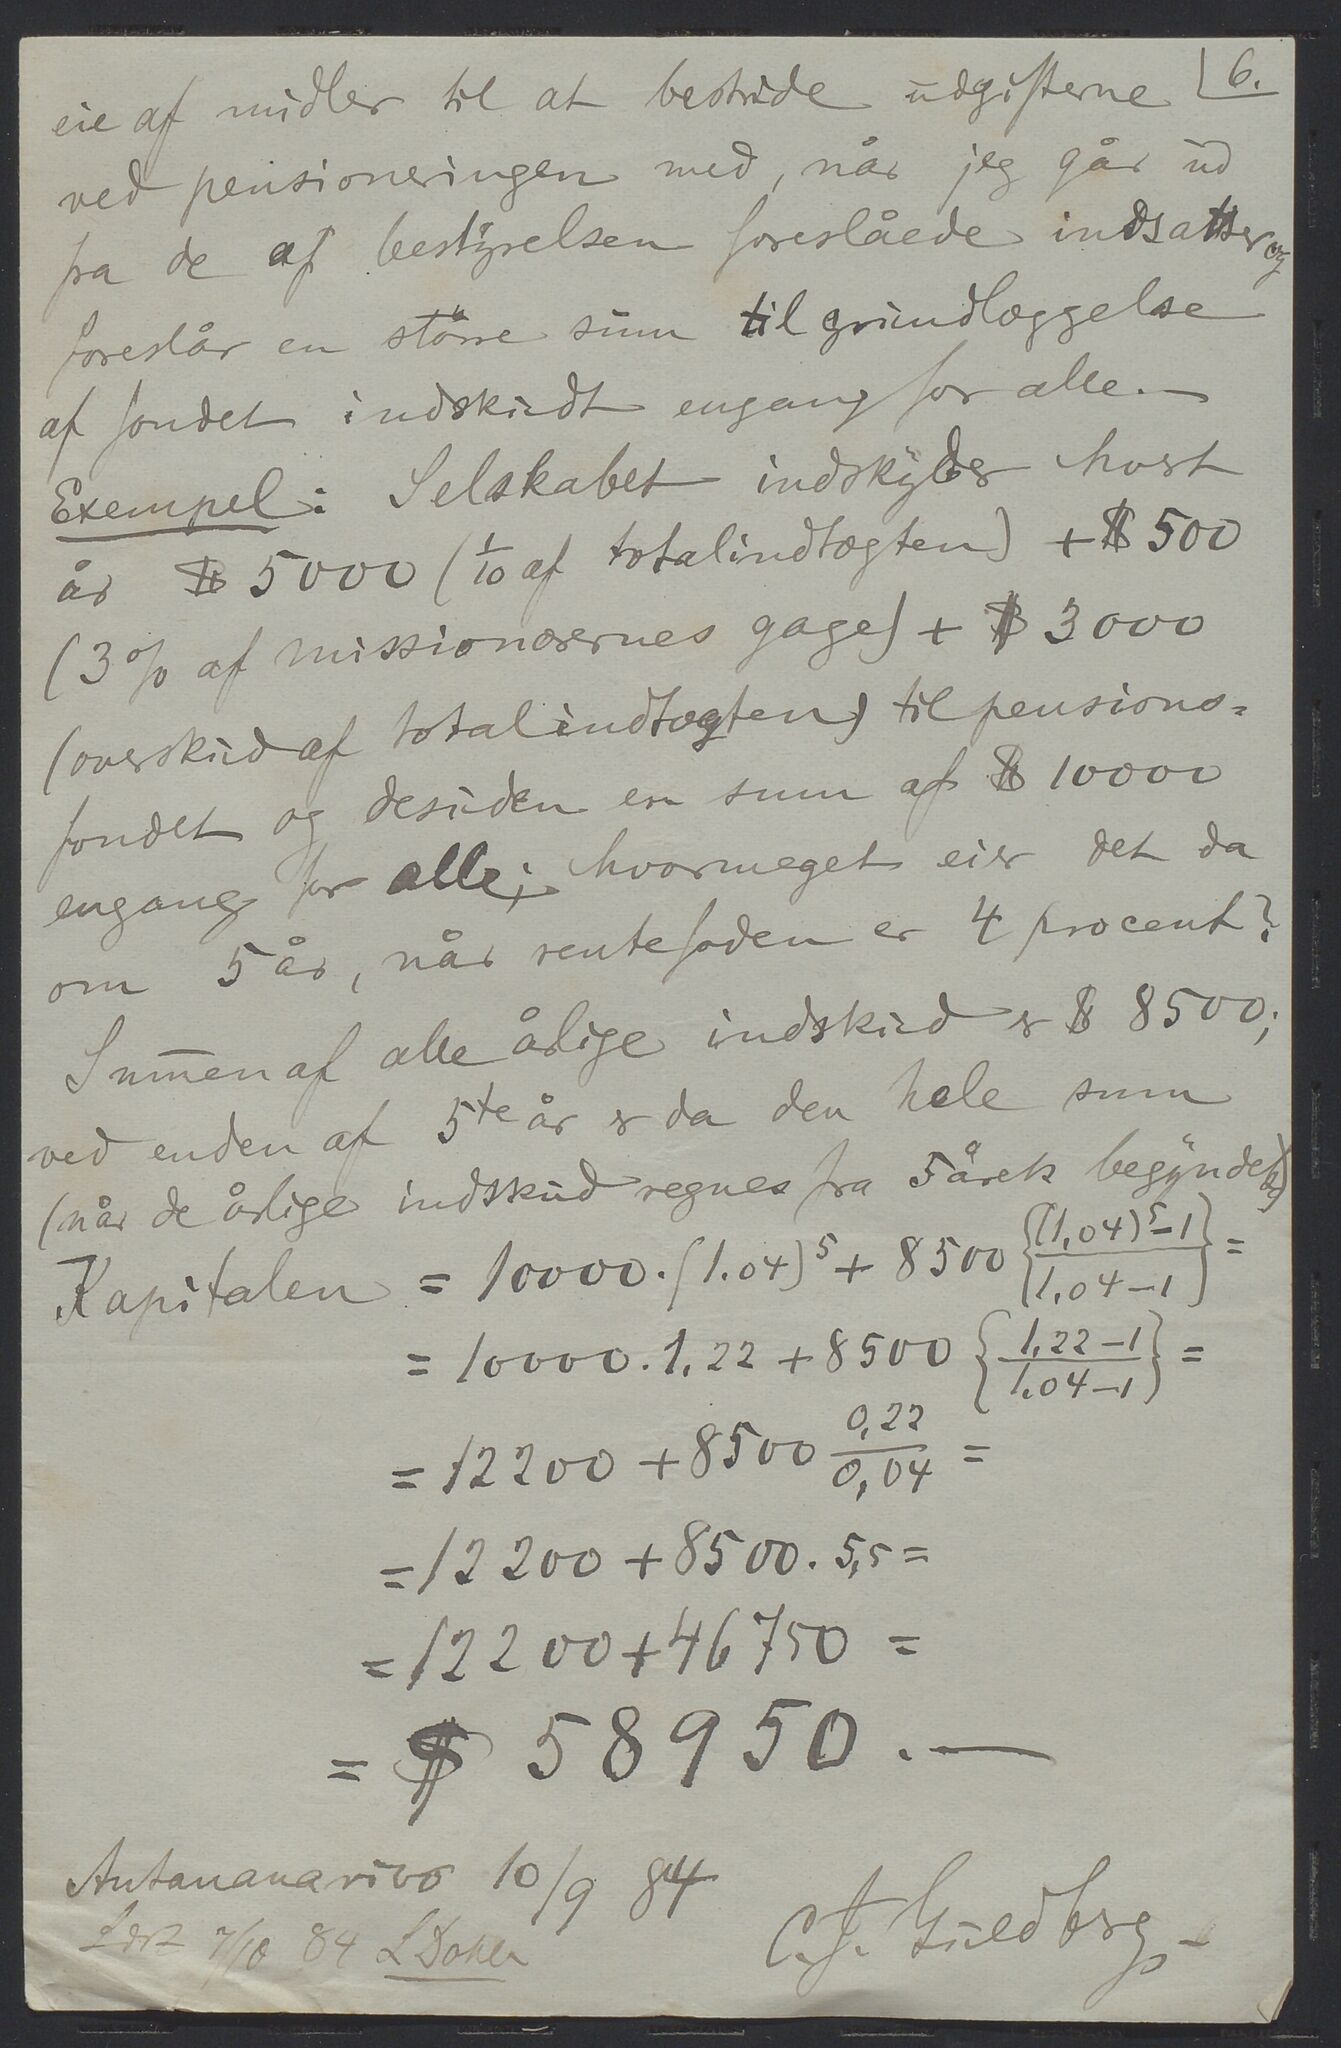 6.
eie af midler til at bestride udgifterne
ved pensioneringen med, når jeg går ud
fra de af bestyrelsen foreslåede indsatser og
foreslår en större sum til grundlæggelse
af fondet indskudt engang for alle.
Exempel: Selskabet indskyder hvert
år $ 5000 (1/10 af totalindtægten) + $ 500
(3% af missionærernes gage) + $ 3000
(overskud af totalindtægten) til pensions-
fondet og desuden en sum af $ 10000
engang for alle; hvormeget eier det da
om 5 år, når rentefoden er 4 procent?
Summen af alle årlige indskud er $ 8500;
ved enden af 5te år er da den hele sum
(når de årlige indskud regnes fra 5 årets begyndelse)
Kapitalen = 10000.(1.04)^5 + 8500 {((1,04)^5-1)/(1,04-1)} =
= 10000.1,22 + 8500 {(1,22-1)/(1.04-1)} =
= 12200 + 8500 0,22/0,04 =
= 12200 + 8500. 5,5 =
= 12200 + 46750 =
= $ 58950.—
Antananarivo 10/9 84
C. J. Guldberg
Læst 7/10 84 L Dahle